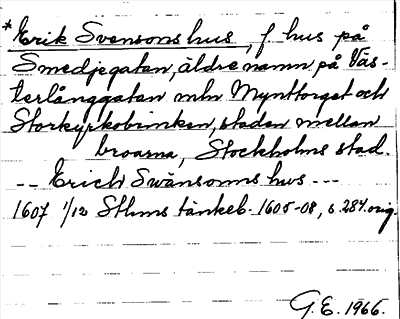 *Erik Svensons hus, f. hus på
Smedjegatan, äldre namn på Väs-
terlånggatan mln Mynttorget och
Storkyrkobrinken, staden mellan
broarna, Stockholms stad.
-- Erich Swänsonns hus ---
1607 1/12 Sthms tänkeb. 1605-08, s. 284. orig.
G.E. 1966.